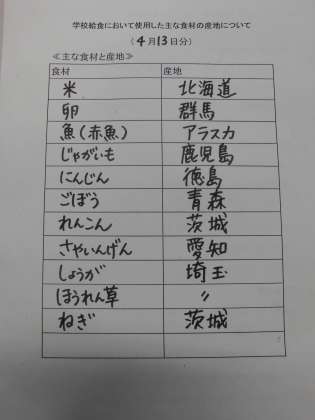 学校給食において使用した主な食材の産地について
(4月13日分)
≪主な食材と産地≫
食材 産地
米 北海道
卵 群馬
魚(赤魚) アラスカ
じゃがいも 鹿児島
にんじん 徳島
ごぼう 青森
れんこん 茨城
さやいんげん 愛知
しょうが 埼玉
ほうれん草 〃
ねぎ 茨城